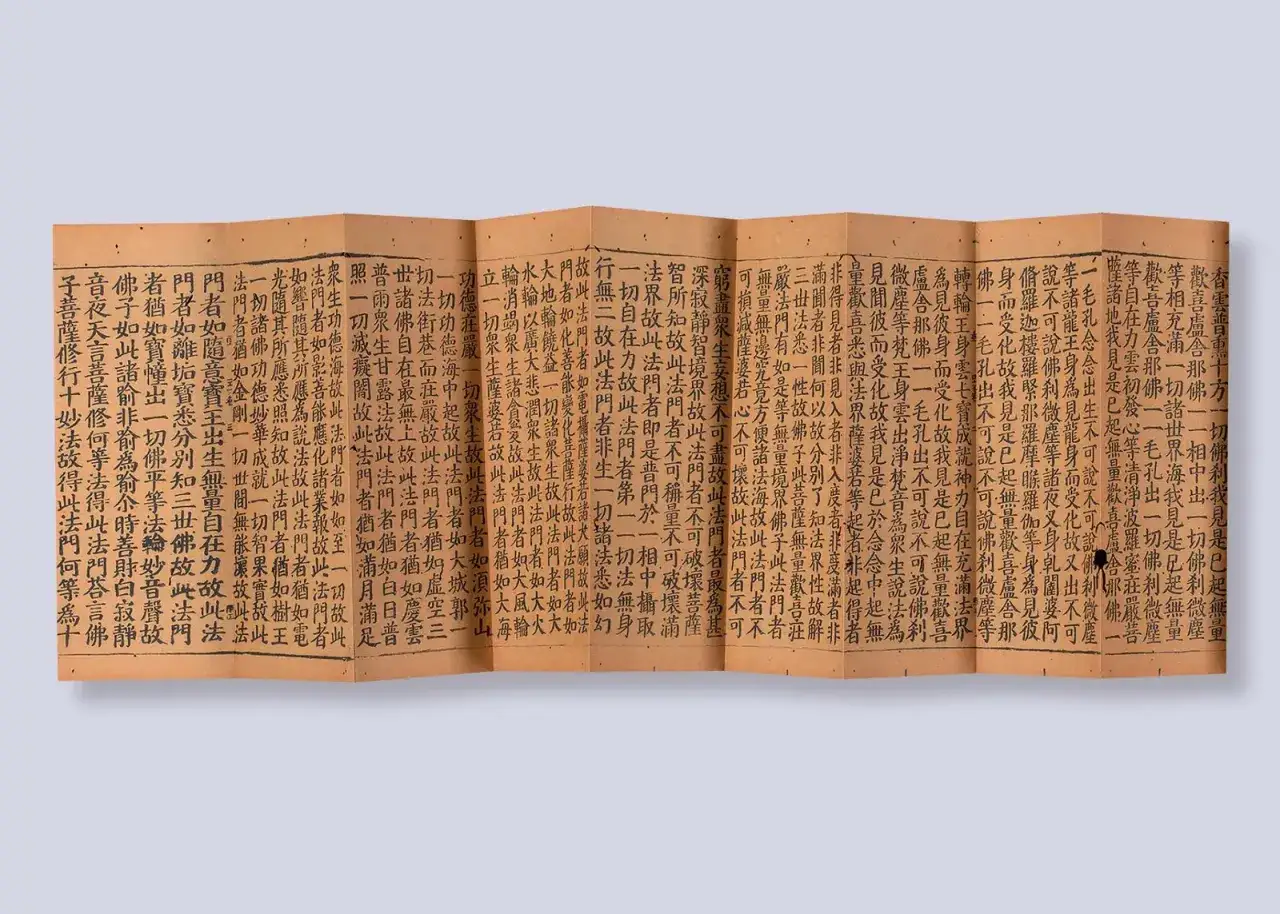 香雲普熏十方一切佛刹我見是已起無量
歡喜盧舍那佛一一相中出一切佛刹微塵
等相充滿一切諸世界海我見是已起無量
歡喜盧舍那佛一一毛孔出一切佛刹微塵
等自在力雲初發心等清淨波羅蜜莊嚴菩
薩諸地我見是已起無量歡喜盧舍那佛一
一毛孔念念出生不可說不可說佛刹微塵
等諸龍王身雲為見龍身而受化故又出不可
說不可說佛刹微塵等諸夜叉身乹闥婆阿
脩羅迦樓羅緊那羅摩睺羅伽等身為見彼
身而受化故我見是已起無量歡喜盧舍那
佛一一毛孔出不可說不可說佛刹微塵等
轉輪王身雲七寶成就神力自在充滿法界
為見彼身而受化故我見是已起無量歡喜
盧舍那佛一一毛孔出不可說不可說佛刹
微塵等梵王身雲出淨梵音為衆生說法為
見聞彼而受化故我見是已於念念中起無
量歡喜悉與法界薩婆若等起者非起得者
非得見者非見入者非入度者非度滿者非
滿聞者非聞何以故分別了知法界性故解
三世法悉一性故佛子此菩薩無量歡喜莊
嚴法門有如是等無量境界佛子此法門者
無量無邊究竟方便諸法海故此法門者不
可損減薩婆若心不可壞故此法門者不可
窮盡衆生妄想不可盡故此法門者最為甚
深寂靜智境界故此法門者不可破壞菩薩
智所知故此法門者不可稱量不可破壞滿
法界故此法門者即是普門於一相中攝取
一切自在力故此法門者第一一切法無身
行無二故此法門者非生一切諸法悉如幻
故此法門者如電攝薩婆若諸大願故此法
門者如化善能變化菩薩行故此法門者如
大地輪饒益一切諸衆生故此法門者如大
水輪以廣大悲潤衆生故此法門者如大火
輪消竭衆生諸貪愛故此法門者如大風輪
立一切衆生薩婆若故此法門者猶如大海
功德莊嚴一切衆生故此法門者如須弥山
一切功德海中起故此法門者如大城郭一
切法街巷而莊嚴故此法門者猶如虛空三
世諸佛自在最無上故此法門者猶如慶雲
普雨衆生甘露法故此法門者猶如白日普
照一切滅癡闇故此法門者猶如滿月滿足
衆生功德海故此法門者如如至一切故此
法門者如影善能應化諸業報故此法門者
如響隨其所應為說法故此法門者猶如電
光隨其所應悉照知故此法門者猶如樹王
一切諸佛功德妙華成就一切智果實故此
法門者猶如金剛一切世間無能壞故此法
門者如隨意寶王出生無量自在力故此法
門者如離垢寶悉分別知三世佛故此法門
者猶如寶幢出一切佛平等法輪妙音聲故
佛子如此諸喻非喻為喻尒時善財白寂靜
音夜天言菩薩修何等法得此法門荅言佛
子菩薩修行十妙法故得此法門何等為十